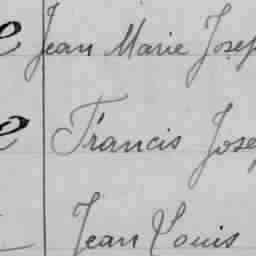 Jean Marie Josep
Francis Jose
Jean Louis